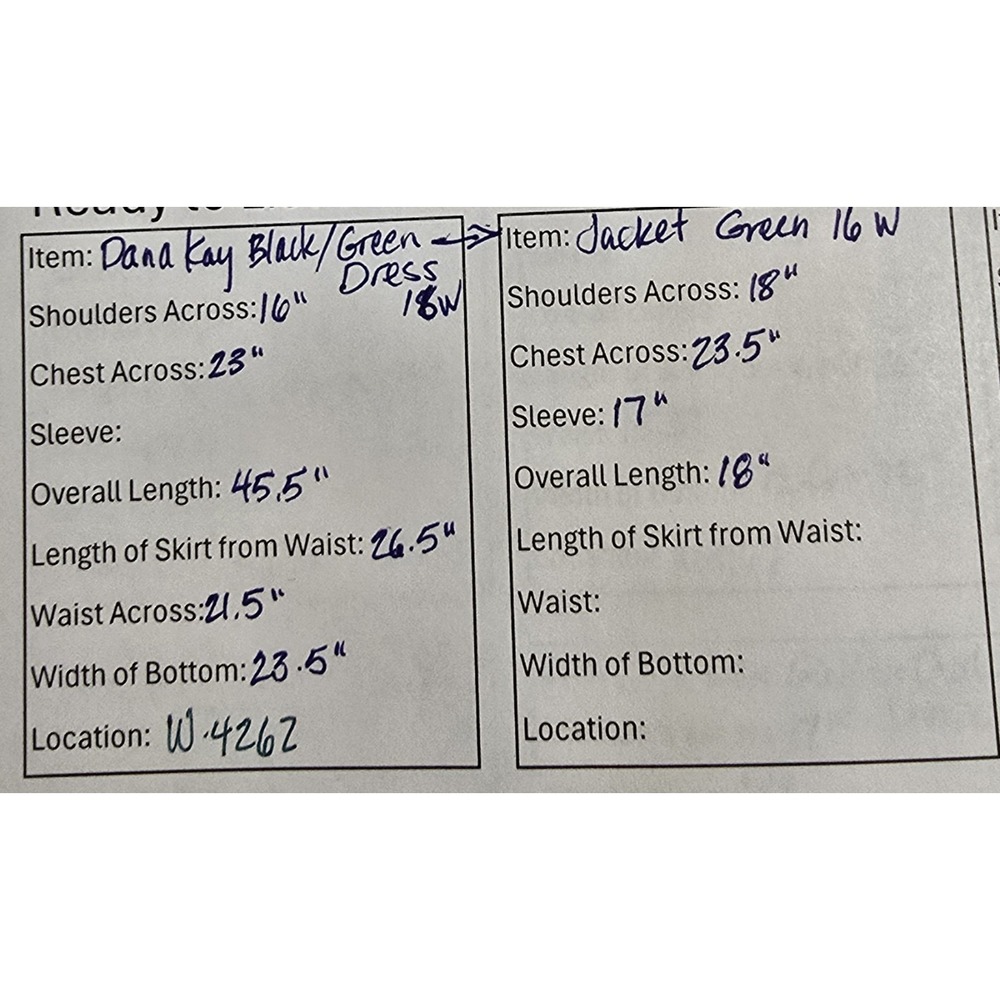 Item: Dana Kay Black/Green →
Dress
18W
Shoulders Across: 16"
Chest Across: 23"
Sleeve:
Overall Length: 45.5"
Length of Skirt from Waist: 26.5"
Waist Across: 21.5"
Width of Bottom: 23.5"
Location: W.4262
Item: Jacket Green 16 W
Shoulders Across: 18"
Chest Across: 23.5"
Sleeve: 17"
Overall Length: 18"
Length of Skirt from Waist:
Waist:
Width of Bottom:
Location: